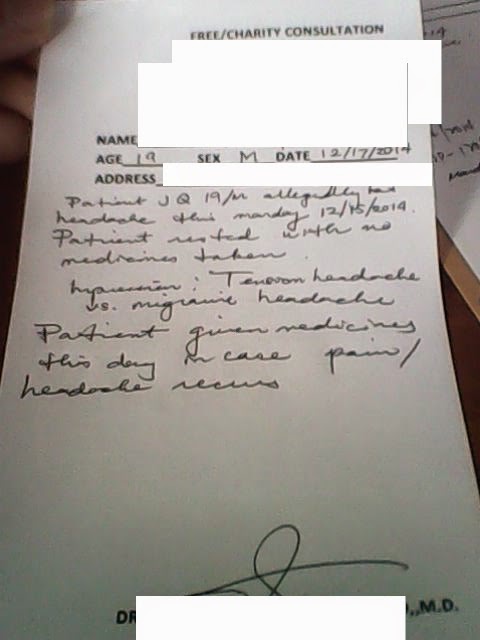 FREE/CHARITY CONSULTATION
NAME
AGE 19 SEX M DATE 12/17/2014
ADDRESS
Patient J Q 19/M allegedly has
headache this monday 12/15/2014.
Patient rested with no
medicines taken.
Impression: Tension headache
vs. migraine headache
Patient given medicines
this day in case pain/
headache recurs
DR
M.D.